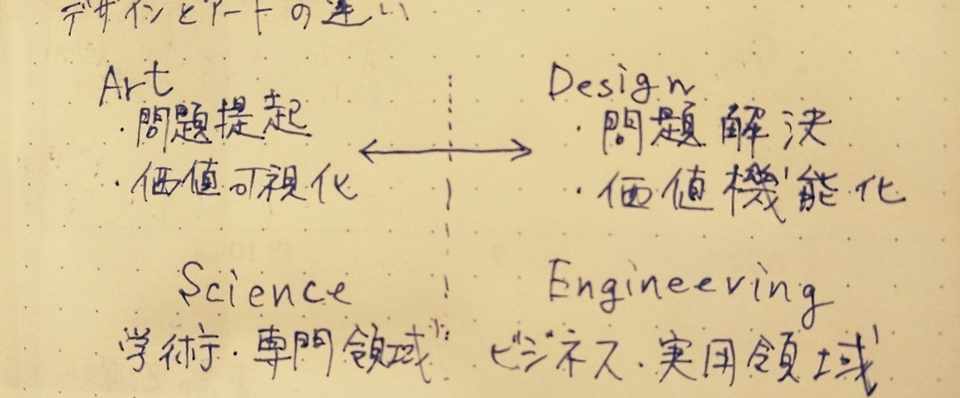 デザインとアートの違い
Art
・問題提起
・価値可視化
Design
・問題解決
・価値機能化
Science
学術・専門領域
Engineering
ビジネス・実用領域